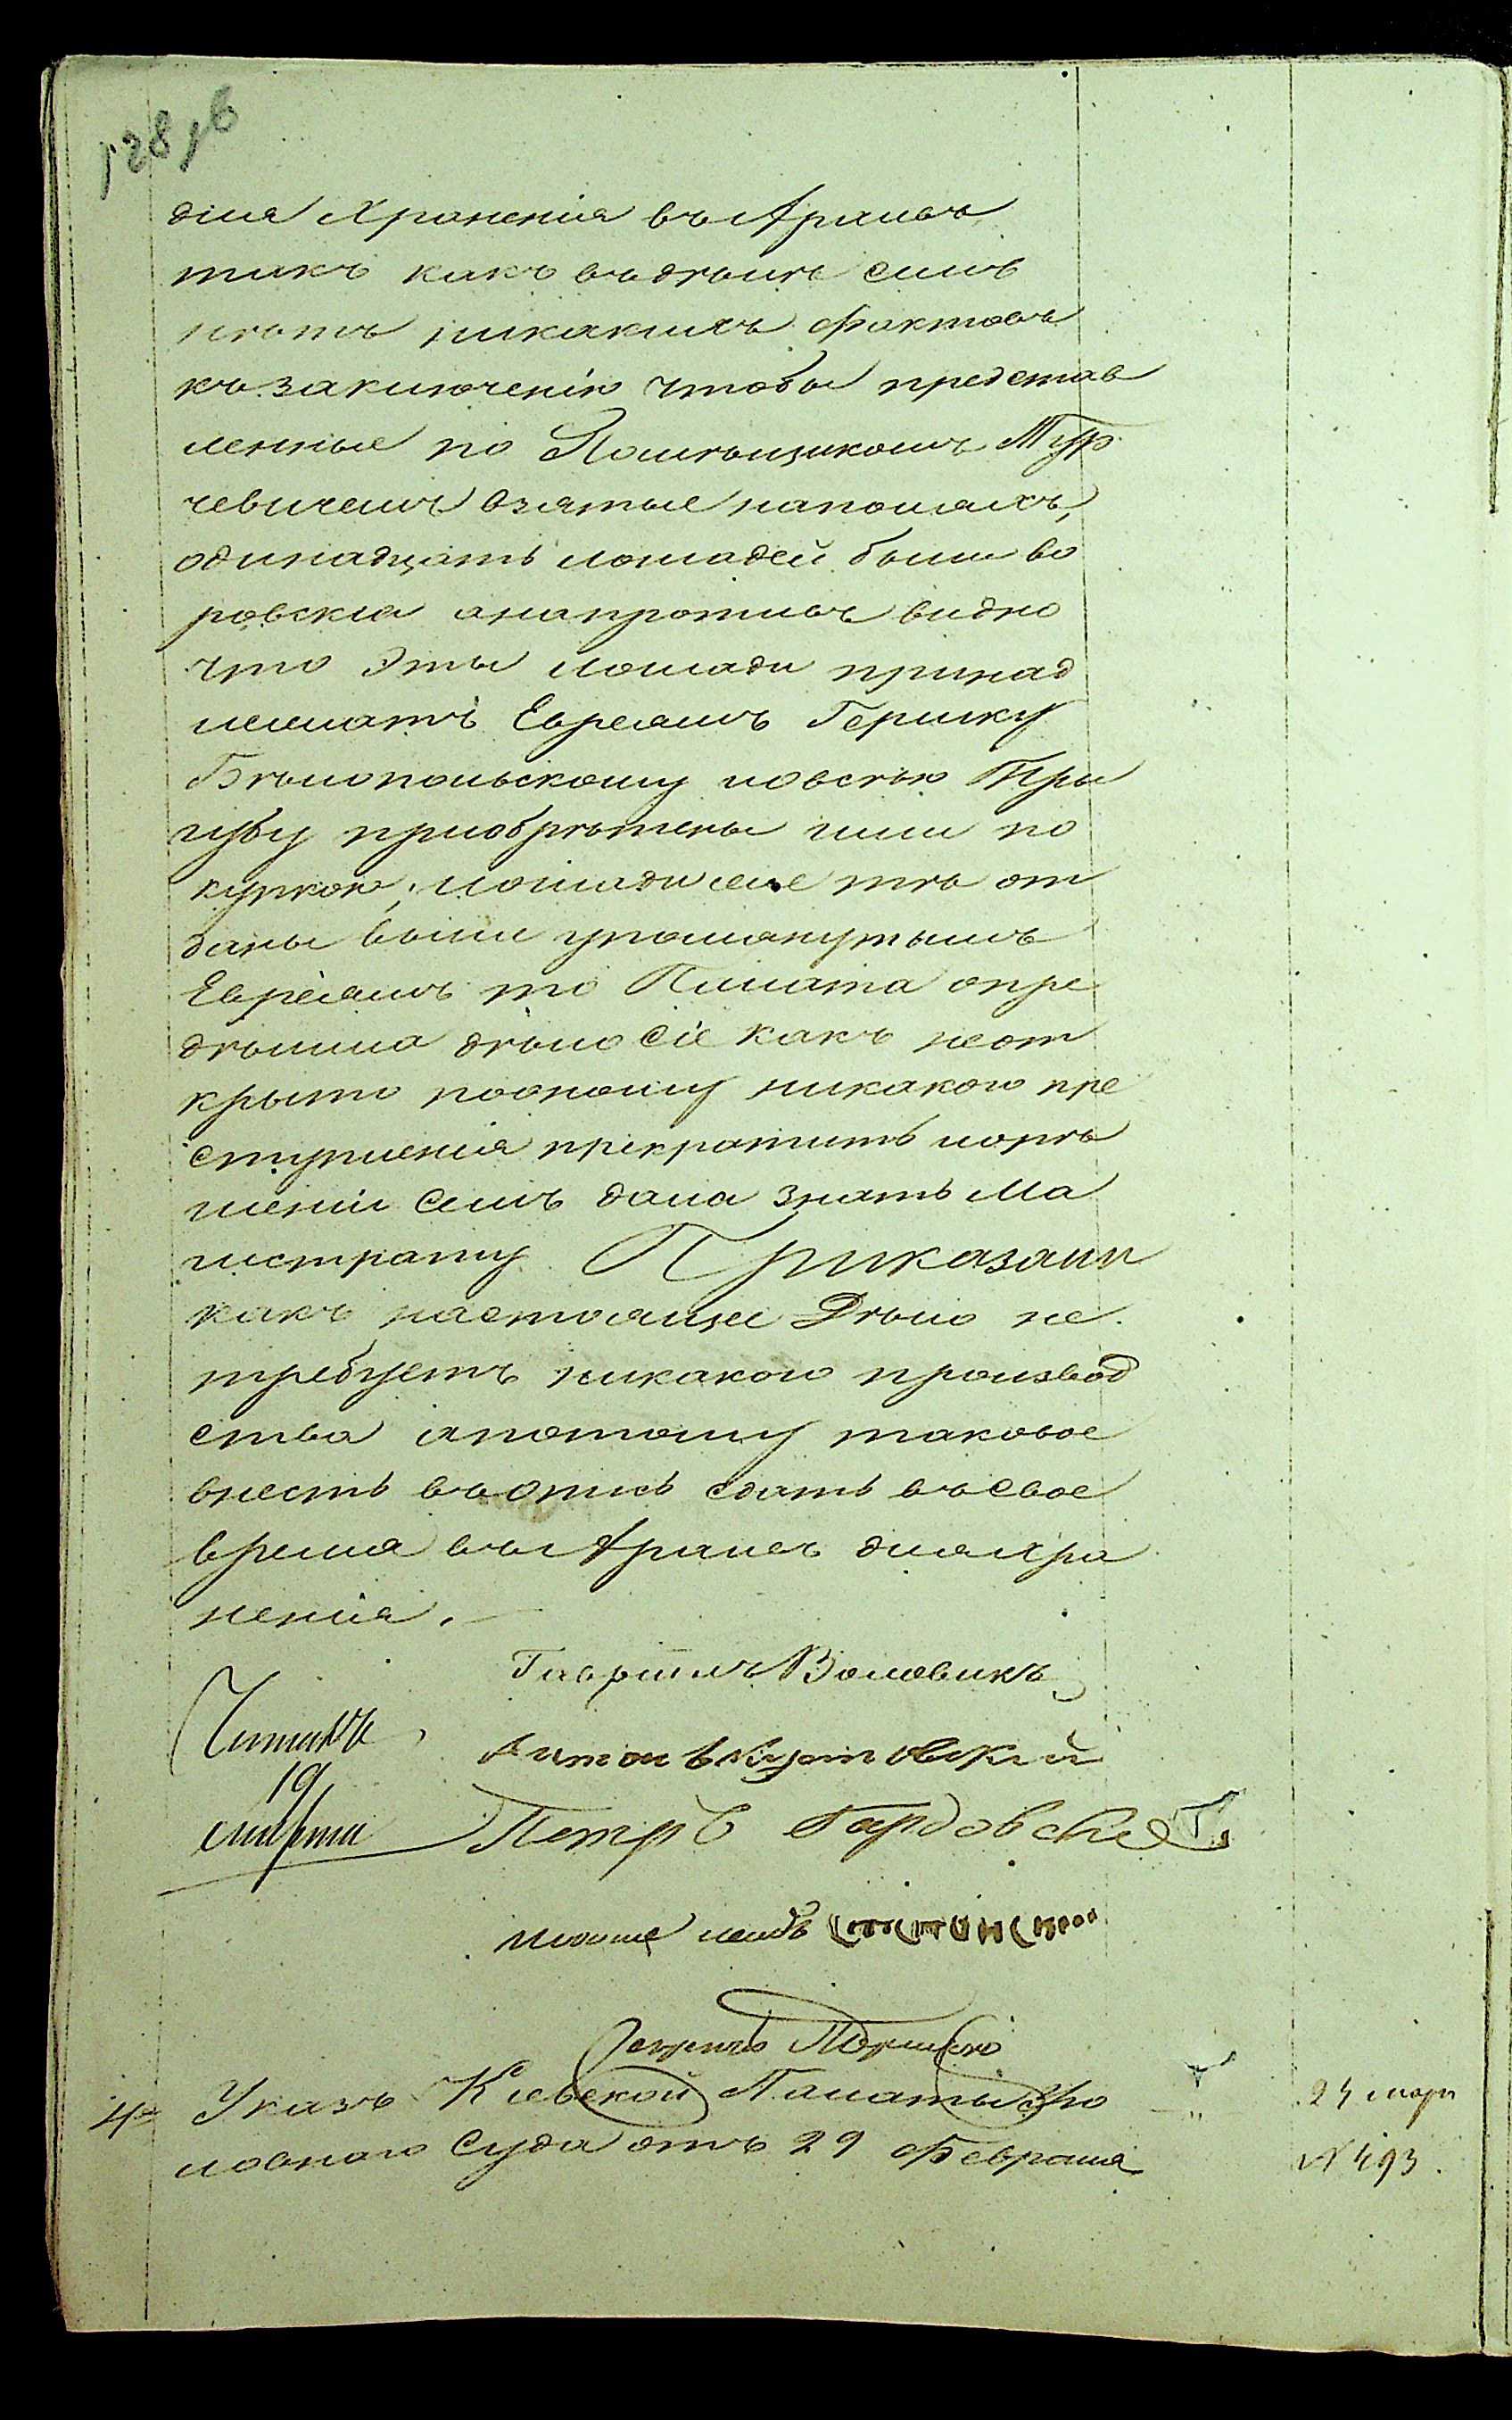 128 об
для Храненія въ Архивъ
такъ какъ въ дѣлѣ семъ
нѣтъ никакихъ фактовъ
къ заключенію чтобы представ
ленные по Помѣщикомъ Тур
чевичемъ взятые на поляхъ,
одинадцать лошадей были во
ровскіа а напротивъ видно
что Эты лошади принад
лежатъ Евреямъ Гершку
Бѣлопольскому и Овсѣю Тры
губу приобрѣтены ими по
купкою, лошади же тѣ от
даны выше упомянутымъ
Евреямъ то Палата опре
дѣлила дѣло Сіе какъ неот
крыто по оному никакого пре
ступленія прекратить и о рѣ
шеніи Семъ дала знать Ма
гистрату Приказали
какъ настоящее Дѣло не
требуетъ никакого производ
ства а потому таковое
внесть въ опись сдать въ свое
время въ Архивъ для хра
ненія.
Гавріилъ Воловикъ
Читалъ
19
марта
Антонъ
Петръ Гардовскій
Секретарь
4 Указъ Кіевской Палаты Уго
ловнаго Суда отъ 29 Февраля
24 март
№ 493.